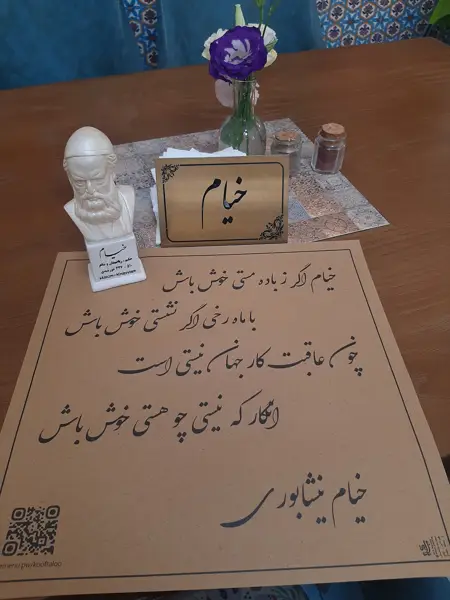 خیام
خیام
خیام اگر ز باده مستی خوش باش
با ماه رخی اگر نشستی خوش باش
چون عاقبت کار جهان نیستی است
انگار که نیستی چو هستی خوش باش
خیام نیشابوری